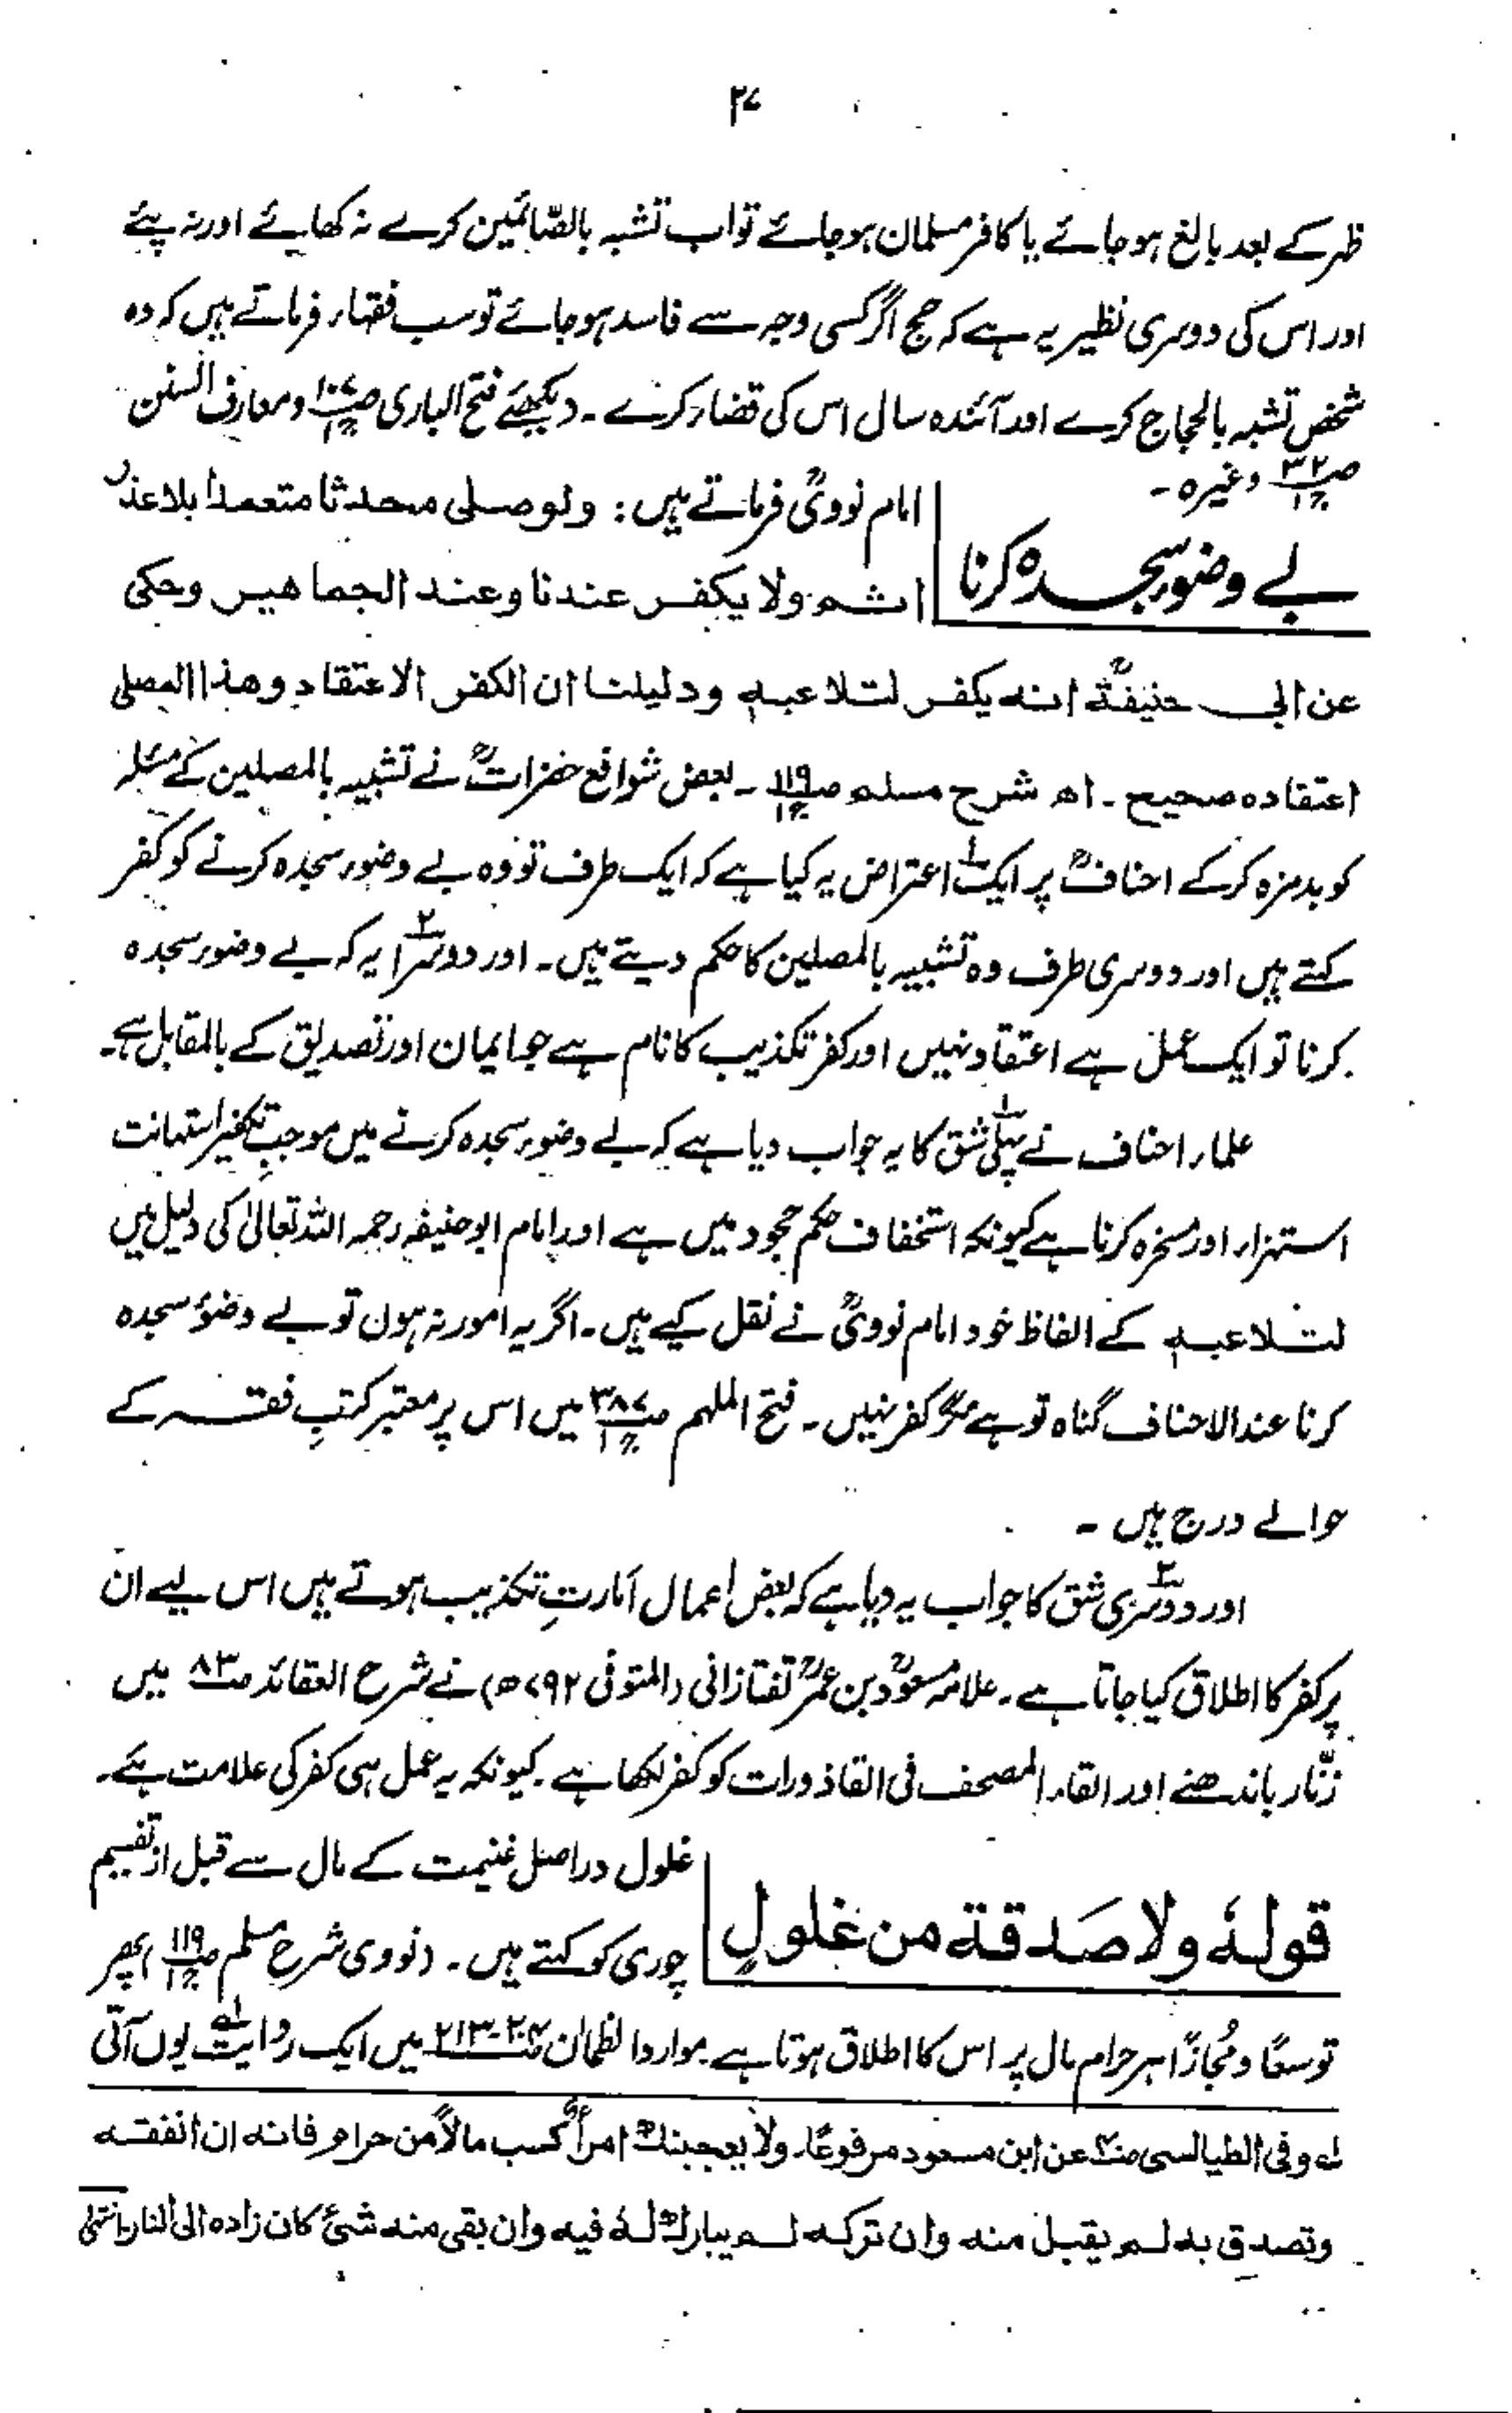 ۲۷
ظہر کے بعد بالغ ہوجائے یا کافر مسلمان ہوجائے تو اب تشبہ بالصّائمین کرے نہ کھائے اور نہ پیئے
اور اس کی دوسری نظیر یہ ہے کہ حج اگر کسی وجہ سے فاسد ہوجائے تو سب فقہاء فرماتے ہیں کہ وہ
شخص تشبہ بالحجاج کرے اور آئندہ سال اس کی قضاء کرے ۔ دیکھئے فتح الباری ص۱۰۷ ج۱ و معارف السنن
ص۳۲ ج۱ وغیرہ ۔
بے وضور سجدہ کرنا
امام نوویؒ فرماتے ہیں : ولو صلی محدثا متعمدا بلا عذر
اثم ولا یکفر عندنا وعند الجماهیر وحکی
عن ابی حنیفةؒ انه یکفر لتلاعبه ودلیلنا ان الکفر الاعتقاد وهذا المصلی
اعتقاده صحیح ۔ اھ شرح مسلم ص۱۱۹ ج۱ ۔ بعض شوافع حضراتؒ نے تشبیہ بالمصلین کے مسئلہ
کو بدمزہ کرکے احنافؒ پر ایک۱ اعتراض یہ کیا ہے کہ ایک طرف تو وہ بے وضور سجدہ کرنے کو کفر
کہتے ہیں اور دوسری طرف وہ تشبیہ بالمصلین کا حکم دیتے ہیں ۔ اور دوسرا۲ یہ کہ بے وضور سجدہ
کرنا تو ایک عمل ہے اعتقاد نہیں اور کفر تکذیب کا نام ہے جو ایمان اور تصدیق کے بالمقابل ہے۔
علماء احناف نے پہلی۱ شق کا یہ جواب دیا ہے کہ بے وضور سجدہ کرنے میں موجبِ تکفیر استہانت
استہزاء اور مسخرہ کرنا ہے کیونکہ استخفاف حکمِ جحود میں ہے اور امام ابوحنیفہ رحمہ اللہ تعالیٰ کی دلیل میں
لتلاعبه کے الفاظ خود امام نوویؒ نے نقل کیے ہیں ۔ اگر یہ امور نہ ہوں تو بے وضوء سجدہ
کرنا عند الاحناف گناہ تو ہے مگر کفر نہیں ۔ فتح الملہم ص۳۸۷ ج۱ میں اس پر معتبر کتبِ فقہ کے
حوالے درج ہیں ۔
اور دوسری۲ شق کا جواب یہ دیا ہے کہ بعض اعمال امارتِ تکذیب ہوتے ہیں اس لیے ان
پر کفر کا اطلاق کیا جاتا ہے ۔ علامہ مسعودؒ بن عمرؒ تفتازانی (المتوفی ۷۹۲ھ) نے شرح العقائد ص۸۳ میں
زنّار باندھنے اور القاء المصحف فی القاذورات کو کفر لکھا ہے ۔ کیونکہ یہ عمل ہی کفر کی علامت ہے۔
قولہٗ ولا صَدقة من غلولٍ
غلول دراصل غنیمت کے مال سے قبل از تقسیم
چوری کو کہتے ہیں ۔ (نووی شرح مسلم ص۱۱۹ ج۱) پھر
توسعًا و مُجازًا ہر حرام مال پر اس کا اطلاق ہوتا ہے ۔ موارد الظمان میں ایک روایت۱ یوں آتی
لہ وفی الطیالسی عن ابن مسعود مرفوعًا۔ ولا یعجبنك امرأً کسب مالاً من حرام فانه ان انفقه
وتصدق به لم یقبل منه وان ترکه لم یبارك لهٗ فیه وان بقی منه شئ کان زاده الی النار انتهٰی